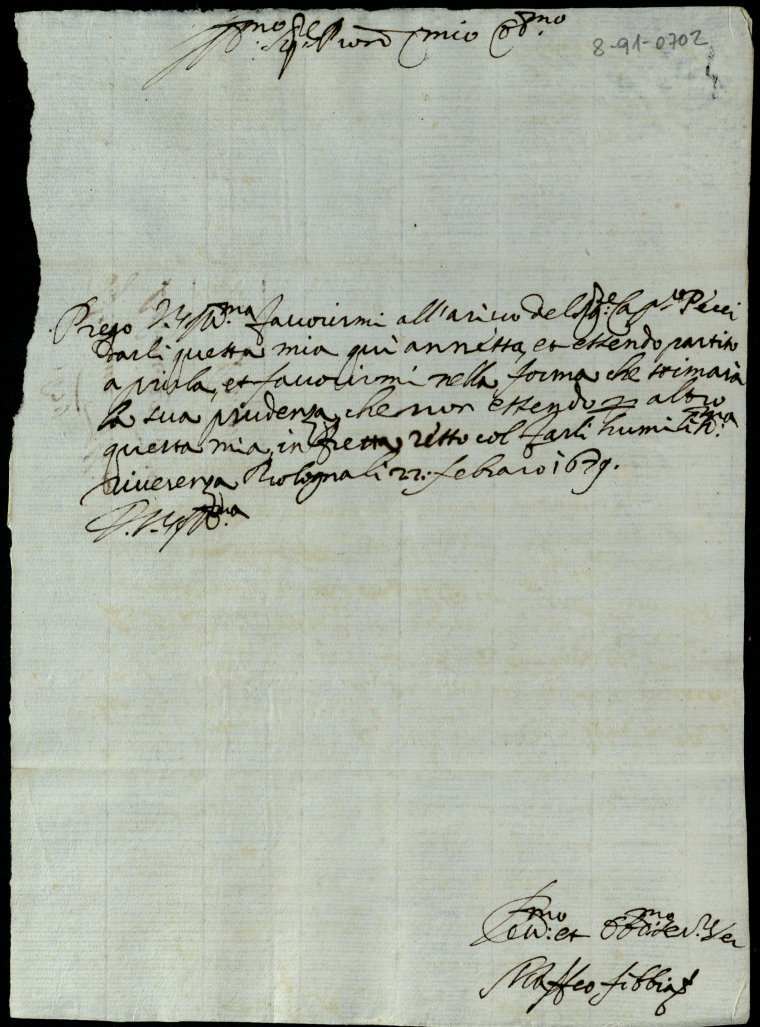 Ill.mo Sig.re Pron mio Col.mo
8-91-0702
Prego V.S. Ill.ma fauorirmi all'ariuo del Sig.re Cap.no Pecci
darli questa mia qui annessa, et essendo partito
a, et fauorirmi nella forma che stimarà
la sua prudenza, che non essendo p altro
questa mia, in fretta resto col farli humiliss.ma
riuerenza Bologna li 22. febraro 1679.
D. V.S. Ill.ma
Deu.mo et Obb.mo Ser.re Ver
Maffeo fibbia